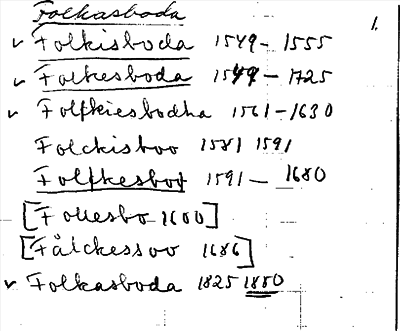 Folkasboda
1.
✓ Folkisboda 1549-1555
✓ Folkesboda 1549-1725
✓ Folfkiesbodha 1561-1630
Folckisboo 1581 1591
Folfkesboo 1591-1680
[Follesbo 1600]
[Fålckessoo 1686]
✓ Folkasboda 1825 1880